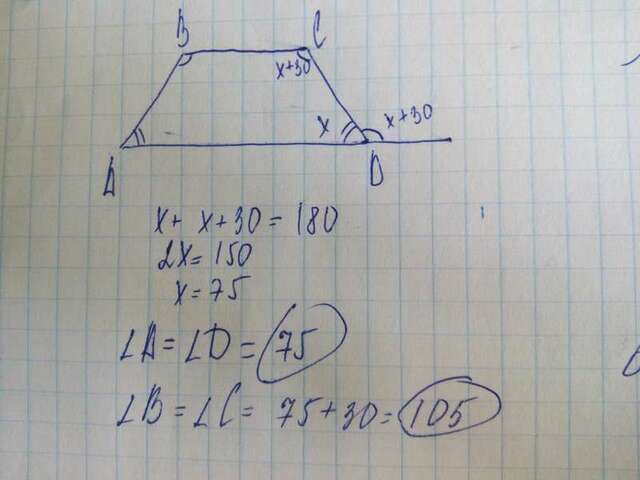 B C
x+30
x x+30
A D
x+ x+30 = 180
2x = 150
x = 75
∠A = ∠D = 75
∠B = ∠C = 75+30 = 105